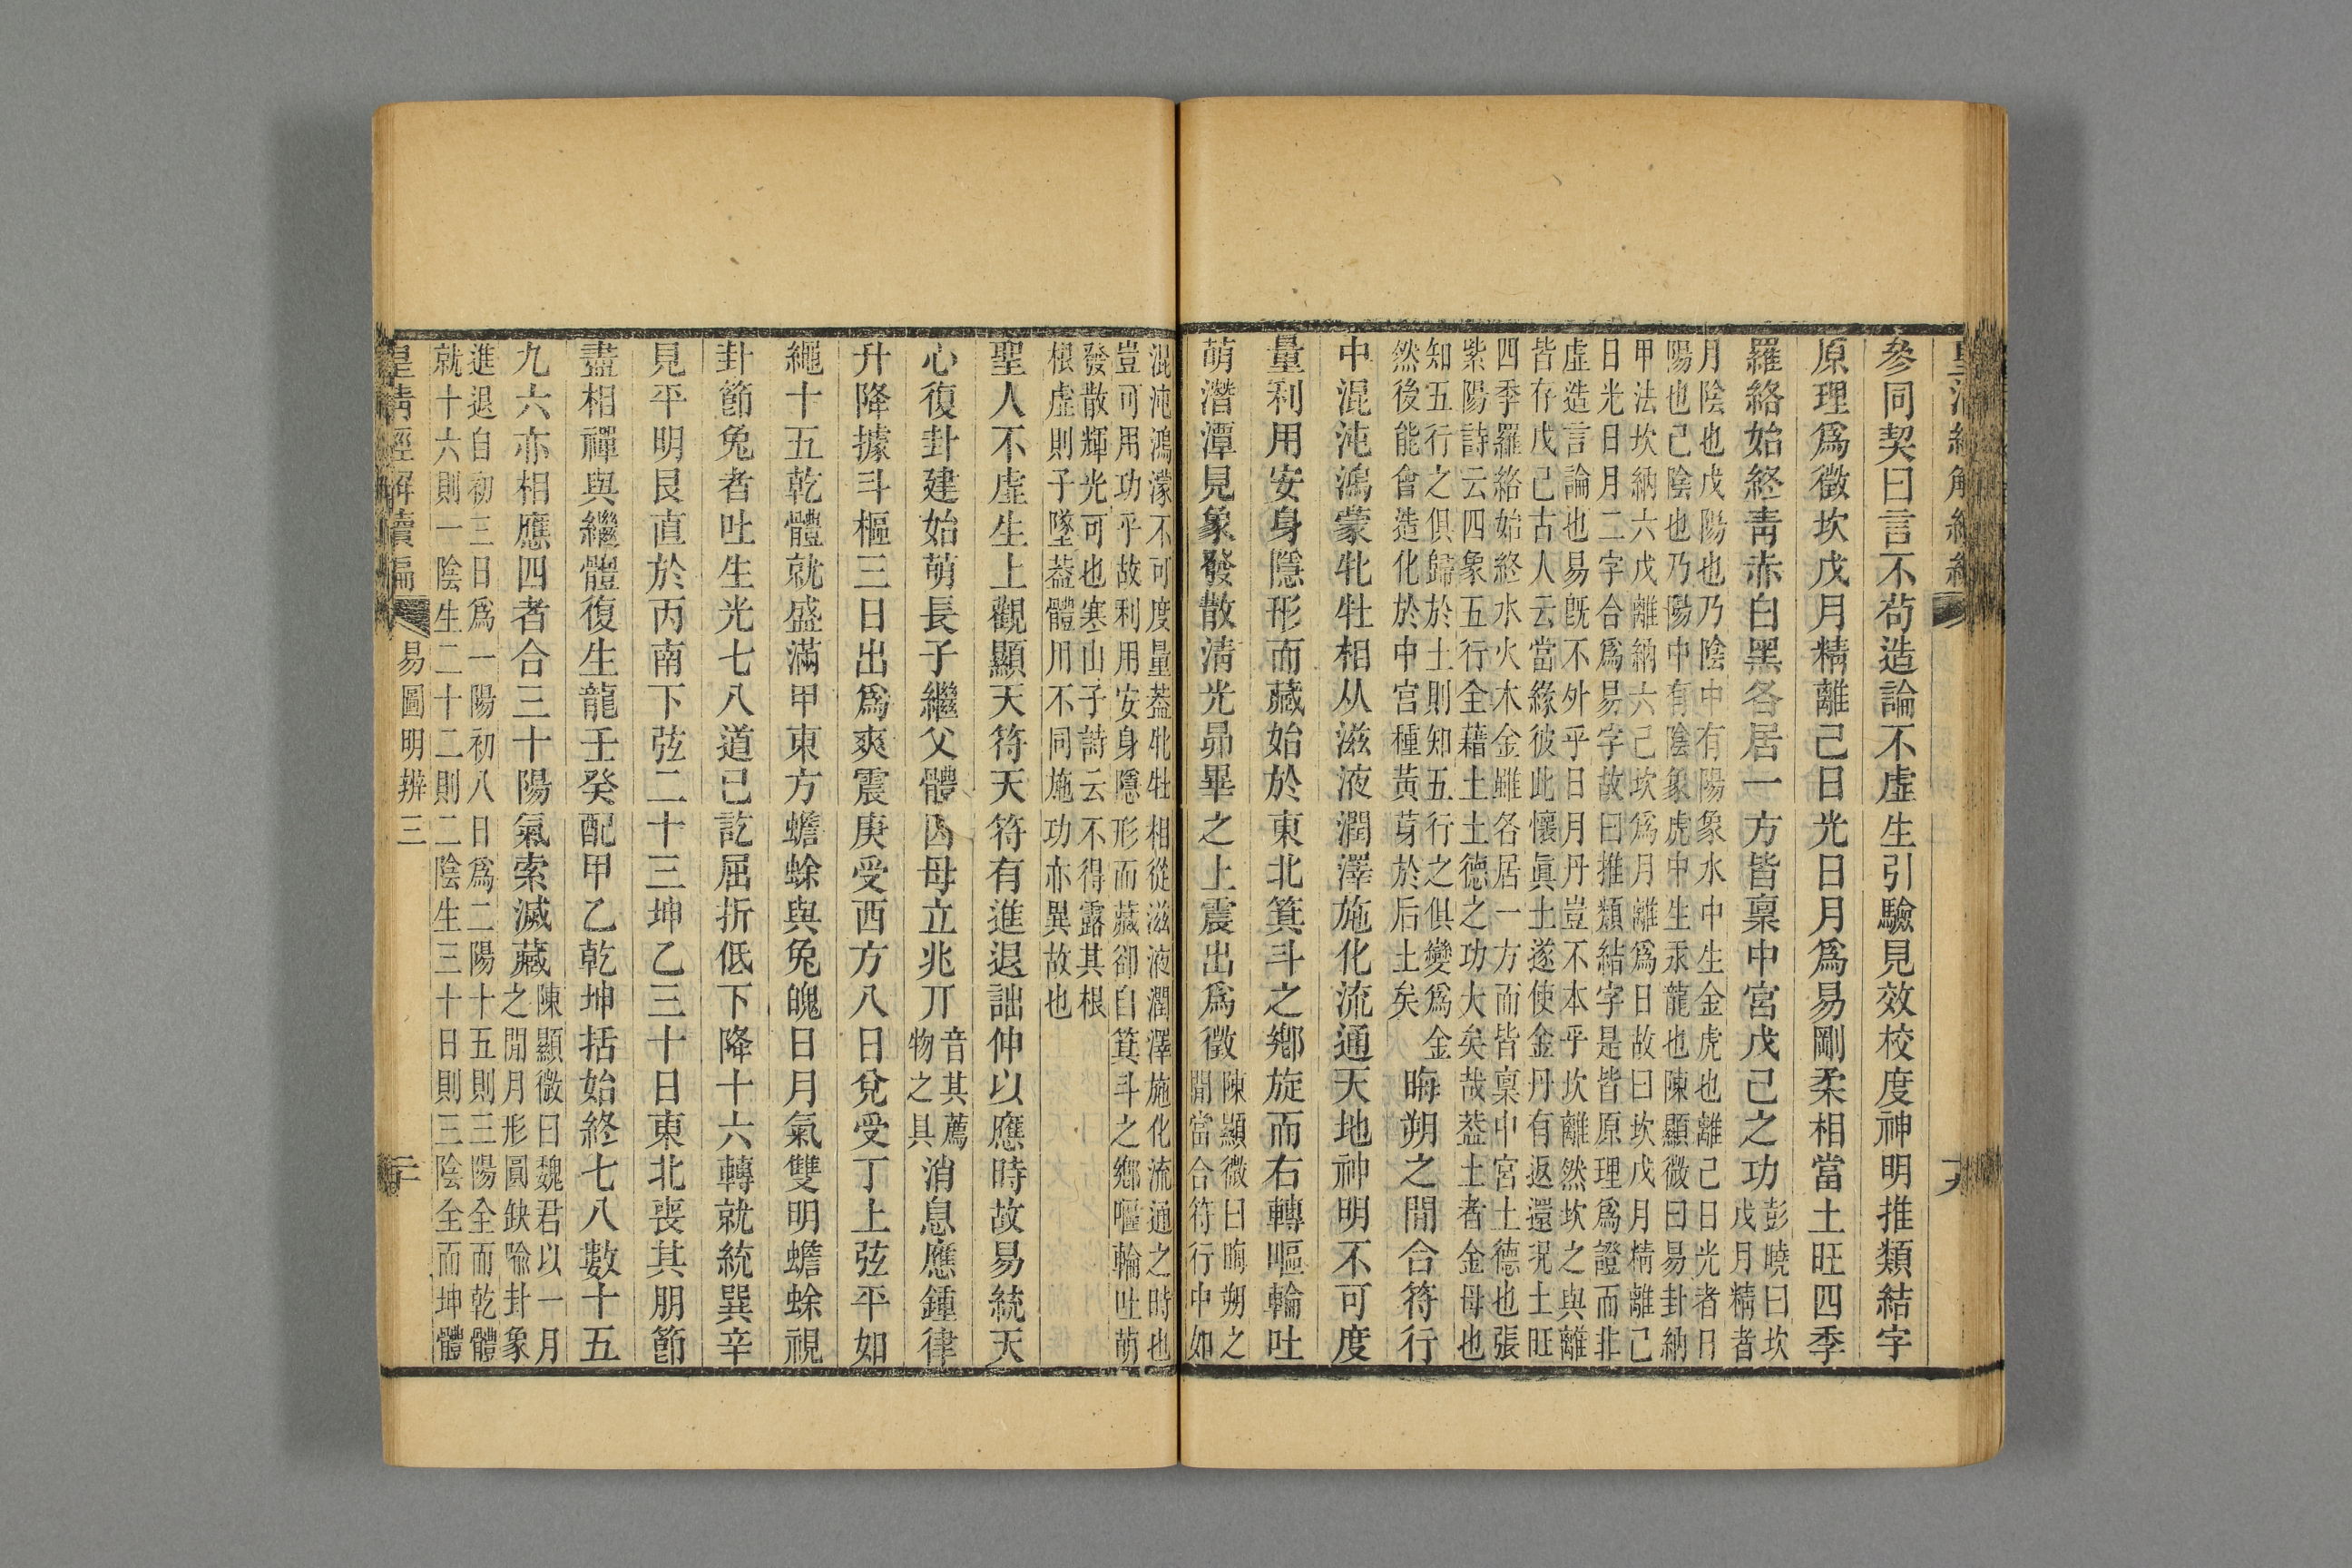 參同契曰言不苟造論不虛生引驗見效校度神明推類結字
原理爲徵坎戊月精離己日光日月爲易剛柔相當土旺四季
羅絡始終青赤白黑各居一方皆稟中宮戊己之功
彭曉曰坎
戊月精者
月陰也戊陽也乃陰中有陽象水中生金虎也離己日光者日
陽也己陰也乃陽中有陰象虎中生汞龍也陳顯微曰易卦納
甲法坎納六戊離納六己坎爲月離爲日故曰坎戊月精離己
日光日月二字合爲易字故曰推類結字是皆原理爲證而非
虛造言論也易旣不外乎日月丹豈不本乎坎離然坎之與離
皆存戊己古人云當緣彼此懷眞土遂使金丹有返還況土旺
四季羅絡始終水火木金雖各居一方而皆稟中宮土德也張
紫陽詩云四象五行全藉土土德之功大矣哉葢土者金母也
知五行之俱歸於土則知五行之俱變爲金
然後能會造化於中宮種黃芽於后土矣
晦朔之閒合符行
中混沌鴻蒙牝牡相从滋液潤澤施化流通天地神明不可度
量利用安身隱形而藏始於東北箕斗之鄉旋而右轉嘔輪吐
萌潛潭見象發散清光昴畢之上震出爲徵
陳顯微曰晦朔之
閒當合符行中如
混沌鴻濛不可度量葢牝牡相從滋液潤澤施化流通之時也
豈可用功乎故利用安身隱形而藏卻自箕斗之鄉嘔輪吐萌
發散輝光可也寒山子詩云不得露其根
根虛則子墜葢體用不同施功亦異故也
聖人不虛生上觀顯天符天符有進退詘伸以應時故易統天
心復卦建始萌長子繼父體因母立兆丌
音其薦
物之具
消息應鍾律
升降據斗樞三日出爲爽震庚受西方八日兌受丁上弦平如
繩十五乾體就盛滿甲東方蟾蜍與兔魄日月氣雙明蟾蜍視
卦節兔者吐生光七八道已訖屈折低下降十六轉就統巽辛
見平明艮直於丙南下弦二十三坤乙三十日東北喪其朋節
盡相禪與繼體復生龍壬癸配甲乙乾坤括始終七八數十五
九六亦相應四者合三十陽氣索滅藏
陳顯微曰魏君以一月
之閒月形圓缺喻卦象
進退自初三日爲一陽初八日爲二陽十五則三陽全而乾體
就十六則一陰生二十二則二陰生三十日則三陰全而坤體
皇清經解續編
易圖明辨三